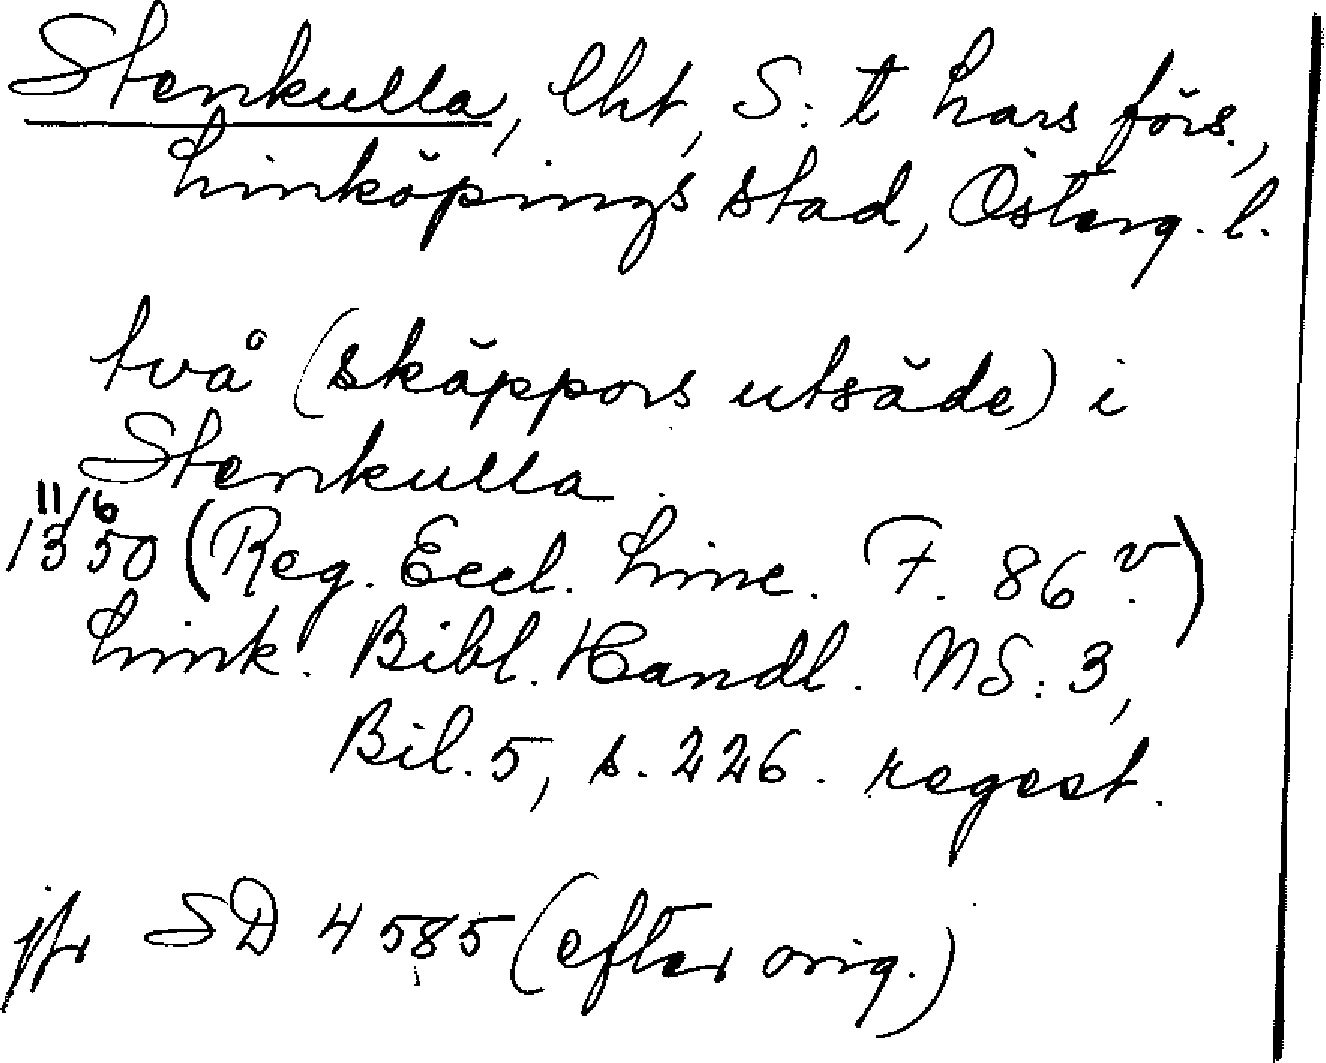 Stenkulla, lht, S:t Lars förs.,
Linköpings stad, Österg. l.
två (skäppors utsäde) i
Stenkulla.
11/6
1350 (Reg. Eccl. Linc. F. 86 v.)
Link. Bibl. Handl. NS: 3,
Bil. 5, s. 226. regest.
jfr SD 4 585 (efter orig.)